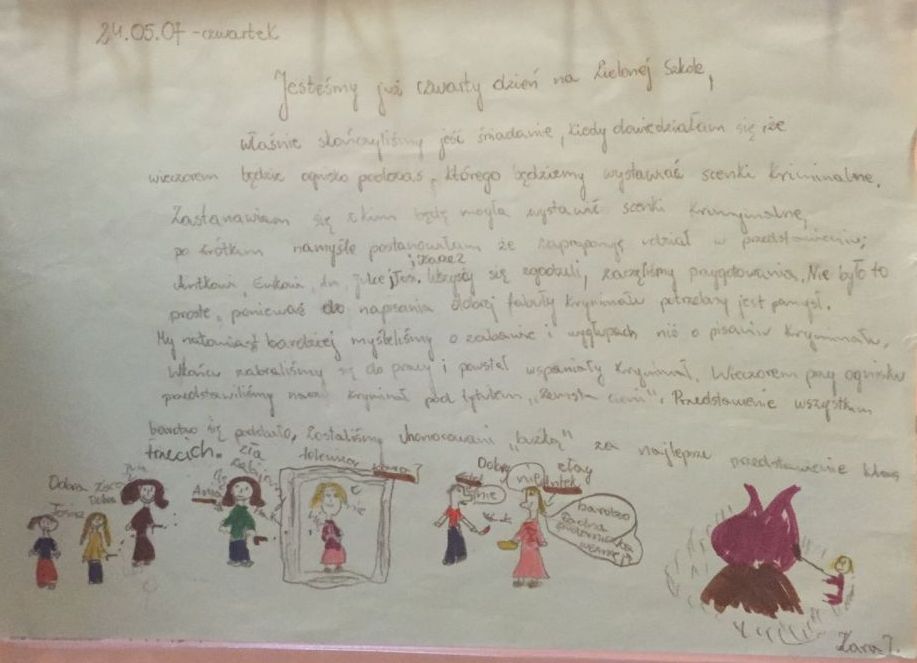 24.05.07 - czwartek
Jesteśmy już czwarty dzień na Zielonej Szkole,
właśnie skończyliśmy jeść śniadanie, kiedy dowiedziałam się że
wieczorem będzie ognisko podczas, którego będziemy wystawiać scenki kriminalne.
Zastanawiam się z kim będę mogła wystawić scenki
po krótkim namyśle postanowiłam że zaproponuję udział w przedstawieniu;
Antkowi, i Wszyscy się zgodzili, zaczęliśmy przygotowania. Nie było to
proste, ponieważ do napisania dobrej fabuły kryminału potrzebny jest pomysł.
My natomiast bardziej myśleliśmy o zabawie i wygłupach niż o pisaniu kryminału.
Wkońcu zabraliśmy się do pracy i powstał wspaniały kryminał. Wieczorem przy ognisku
przedstawiliśmy nasz kryminał pod tytułem "Zemsta". Przedstawienie wszystkim
bardzo się podobało, Zostaliśmy uhonorowani "buźką" za najlepsze przedstawienie klas
trzecich.
Dobra
Dobra
Ania
zła
telewizor
nie
Dobry
nie
zły
Antek
bardzo
Zara J.